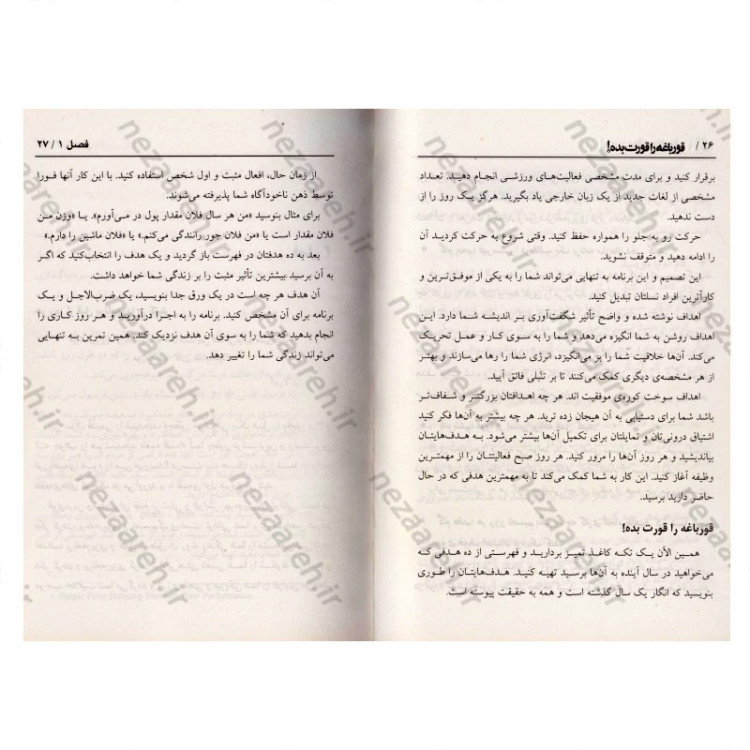 ۲۶ / قورباغه را قورت بده!
برقرار کنید و برای مدت مشخصی فعالیت‌های ورزشی انجام دهید. تعداد
مشخصی از لغات جدید از یک زبان خارجی یاد بگیرید. هرگز یک روز را از
دست ندهید.
حرکت رو به جلو را همواره حفظ کنید. وقتی شروع به حرکت کردید آن
را ادامه دهید و متوقف نشوید.
این تصمیم و این برنامه به تنهایی می‌تواند شما را به یکی از موفق‌ترین و
کارآترین افراد نسلتان تبدیل کنید.
اهداف نوشته شده و واضح تأثیر شگفت‌آوری بر اندیشه شما دارد. این
اهداف روشن به شما انگیزه می‌دهد و شما را به سوی کار و عمل تحریک
می‌کند. آن‌ها خلاقیت شما را بر می‌انگیزد، انرژی شما را رها می‌سازند و بهتر
از هر مشخصه‌ی دیگری کمک می‌کنند تا بر تنبلی فائق آیید.
اهداف سوخت کوره‌ی موفقیت اند. هر چه اهدافتان بزرگتر و شفاف‌تر
باشد شما برای دستیابی به آن هیجان زده ترید. هر چه بیشتر به آن‌ها فکر کنید
اشتیاق درونی‌تان و تمایلتان برای تکمیل آن‌ها بیشتر می‌شود. به هدف‌هایتان
بیاندیشید و هر روز آن‌ها را مرور کنید. هر روز صبح فعالیتتان را از مهمترین
وظیفه آغاز کنید. این کار به شما کمک می‌کند تا به مهمترین هدفی که در حال
حاضر دارید برسید.
قورباغه را قورت بده!
همین الأن یک تکه کاغذ تمیز بردارید و فهرستی از ده هدفی که
می‌خواهید در سال آینده به آن‌ها برسید تهیه کنید. هدف‌هایتان را طوری
بنویسید که انگار یک سال گذشته است و همه به حقیقت پیوسته است.
فصل ۱ / ۲۷
از زمان حال، افعال مثبت و اول شخص استفاده کنید. با این کار آنها فورا
توسط ذهن ناخودآگاه شما پذیرفته می‌شوند.
برای مثال بنوسید «من هر سال فلان مقدار پول در می‌آورم». یا «وزن من
فلان مقدار است یا «من فلان جور رانندگی می‌کنم.» یا «فلان ماشین را دارم.»
بعد به ده هدفتان در فهرست باز گردید و یک هدف را انتخاب‌کنید که اگر
به آن برسید بیشترین تأثیر مثبت را بر زندگی شما خواهد داشت.
آن هدف هر چه است در یک ورق جدا بنویسید، یک ضرب‌الاجل و یک
برنامه برای آن مشخص کنید. برنامه را به اجرا درآورید و هر روز کاری را
انجام بدهید که شما را به سوی آن هدف نزدیک کند. همین تمرین به تنهایی
می‌تواند زندگی شما را تغییر دهد.
nezaareh.ir
nezaareh.ir
nezaareh.ir
nezaareh.ir
nezaareh.ir
nezaareh.ir